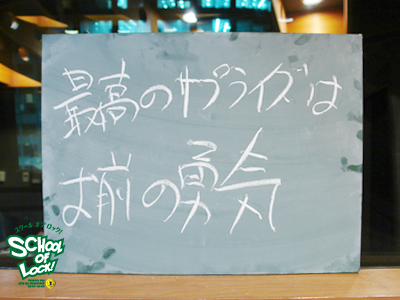 最高のサプライズは
お前の勇気
スクール オブ ロック!
SCHOOL
OF
LOCK!